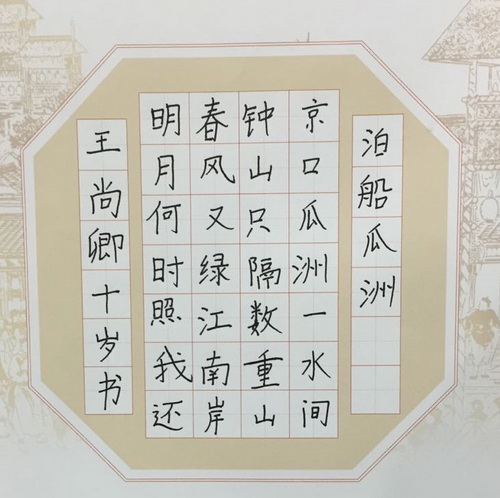 泊船瓜洲
京口瓜洲一水间
钟山只隔数重山
春风又绿江南岸
明月何时照我还
王尚卿十岁书